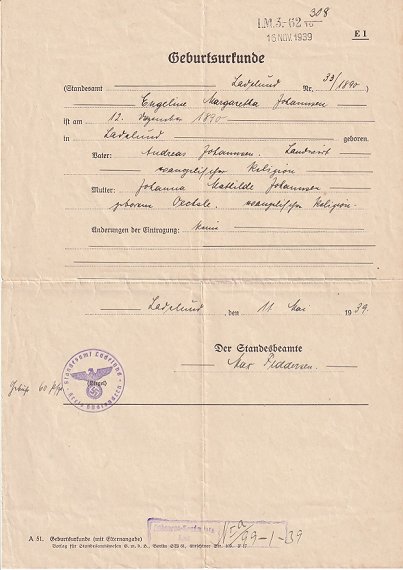 308
I.M.3.-62
16 NOV. 1939
E 1
Geburtsurkunde
(Standesamt Ladelund Nr. 33/1890)
Engeline Margaretha Johannsen
ist am 12. Dezember 1890
in Ladelund geboren.
Vater: Andreas Johannsen. Landwirt
evangelischer Religion
Mutter: Johanna Mathilde Johannsen
geborene evangelischer Religion.
Änderungen der Eintragung: Keine
Ladelund, den 11 Mai 1939.
Der Standesbeamte
Max Feddersen.
Standesamt Ladelund
(Siegel)
Kreis Südtondern
Gebühr 60 Pfg
99-1-39
A 51. Geburtsurkunde (mit Elternangabe)
Verlag für Standesamtswesen G. m. b. H., Berlin SW 61, Gitschiner Str.